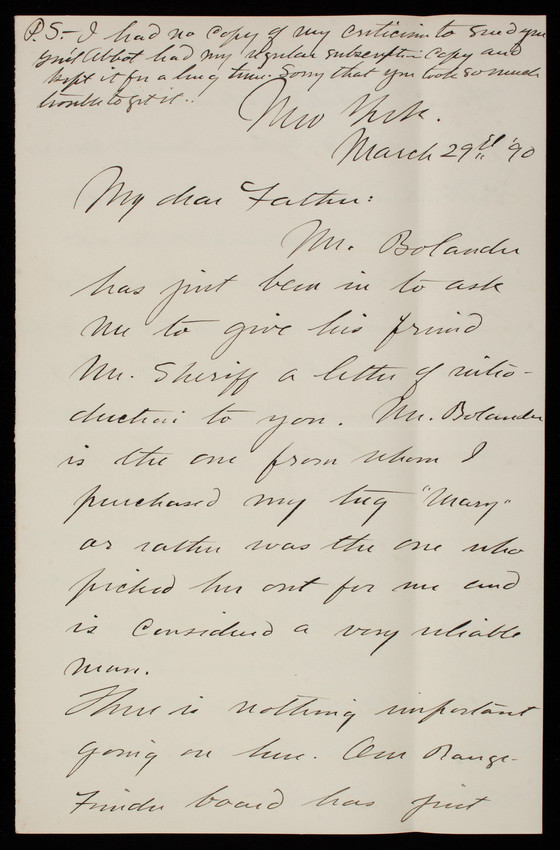 P.S- I had no copy of my criticism to send you
Gen'l Abbot had my regular subscription copy and
kept it for a long time. Sorry that you took so much
trouble to get it.
New York.
March 29th '90
My dear Father:
Mr. Bolander
has just been in to ask
me to give his friend
Mr. Sheriff a letter of intro-
duction to you. Mr. Bolander
is the one from whom I
purchased my tug "Mary"
or rather was the one who
picked her out for me and
is considered a very reliable
man.
There is nothing important
going on here. Our Range-
Finder board has just